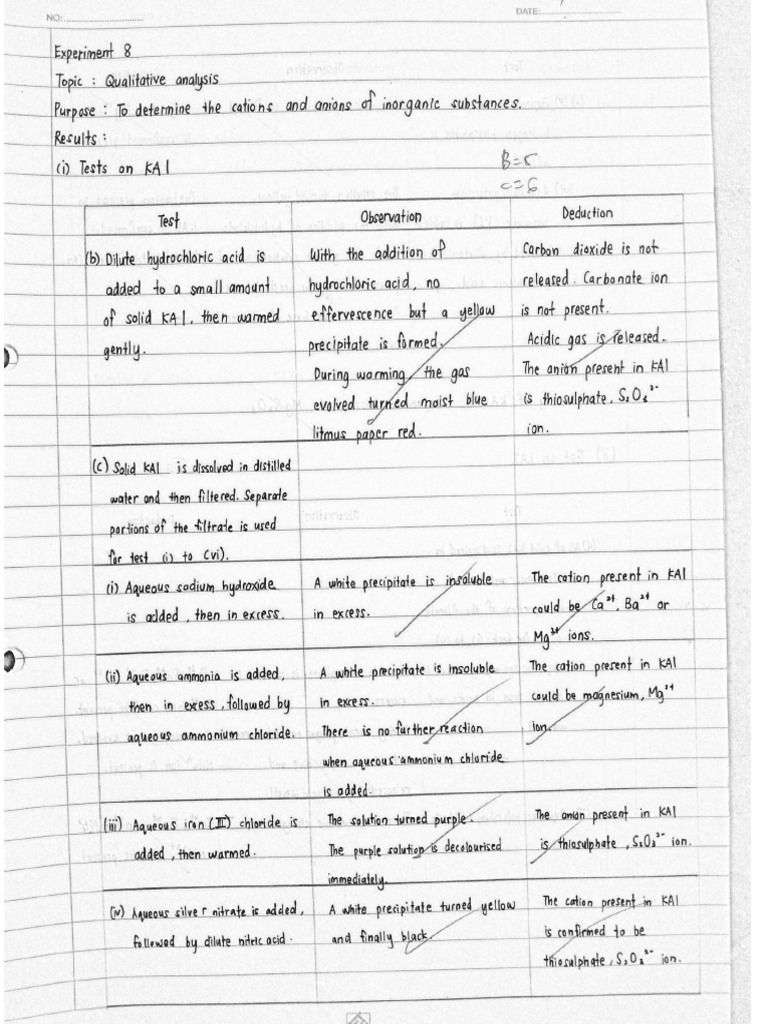 NO:
DATE:
Experiment 8
Topic : Qualitative analysis
Purpose : To determine the cations and anions of inorganic substances.
Results :
(i) Tests on KA1
B=5
C=6
Test
Observation
Deduction
(b) Dilute hydrochloric acid is
added to a small amount
of solid KA1, then warmed
gently.
With the addition of
hydrochloric acid, no
effervescence but a yellow
precipitate is formed.
During warming, the gas
evolved turned moist blue
litmus paper red.
Carbon dioxide is not
released. Carbonate ion
is not present.
Acidic gas is released.
The anion present in KA1
is thiosulphate, S₂O₃²⁻
ion.
(c) Solid KA1 is dissolved in distilled
water and then filtered. Separate
portions of the filtrate is used
for test (i) to (vi).
(i) Aqueous sodium hydroxide
is added, then in excess.
A white precipitate is insoluble
in excess.
The cation present in KA1
could be Ca²⁺, Ba²⁺ or
Mg²⁺ ions.
(ii) Aqueous ammonia is added,
then in exess, followed by
aqueous ammonium chloride.
A white precipitate is insoluble
in excess.
There is no further reaction
when aqueous ammonium chloride
is added.
The cation present in KA1
could be magnesium, Mg²⁺
ion.
(iii) Aqueous iron (III) chloride is
added, then warmed.
The solution turned purple.
The purple solution is decolourised
immediately.
The anion present in KA1
is thiosulphate, S₂O₃²⁻ ion.
(iv) Aqueous silver nitrate is added,
followed by dilute nitric acid.
A white precipitate turned yellow
and finally black.
The cation present in KA1
is confirmed to be
thiosulphate, S₂O₃²⁻ ion.